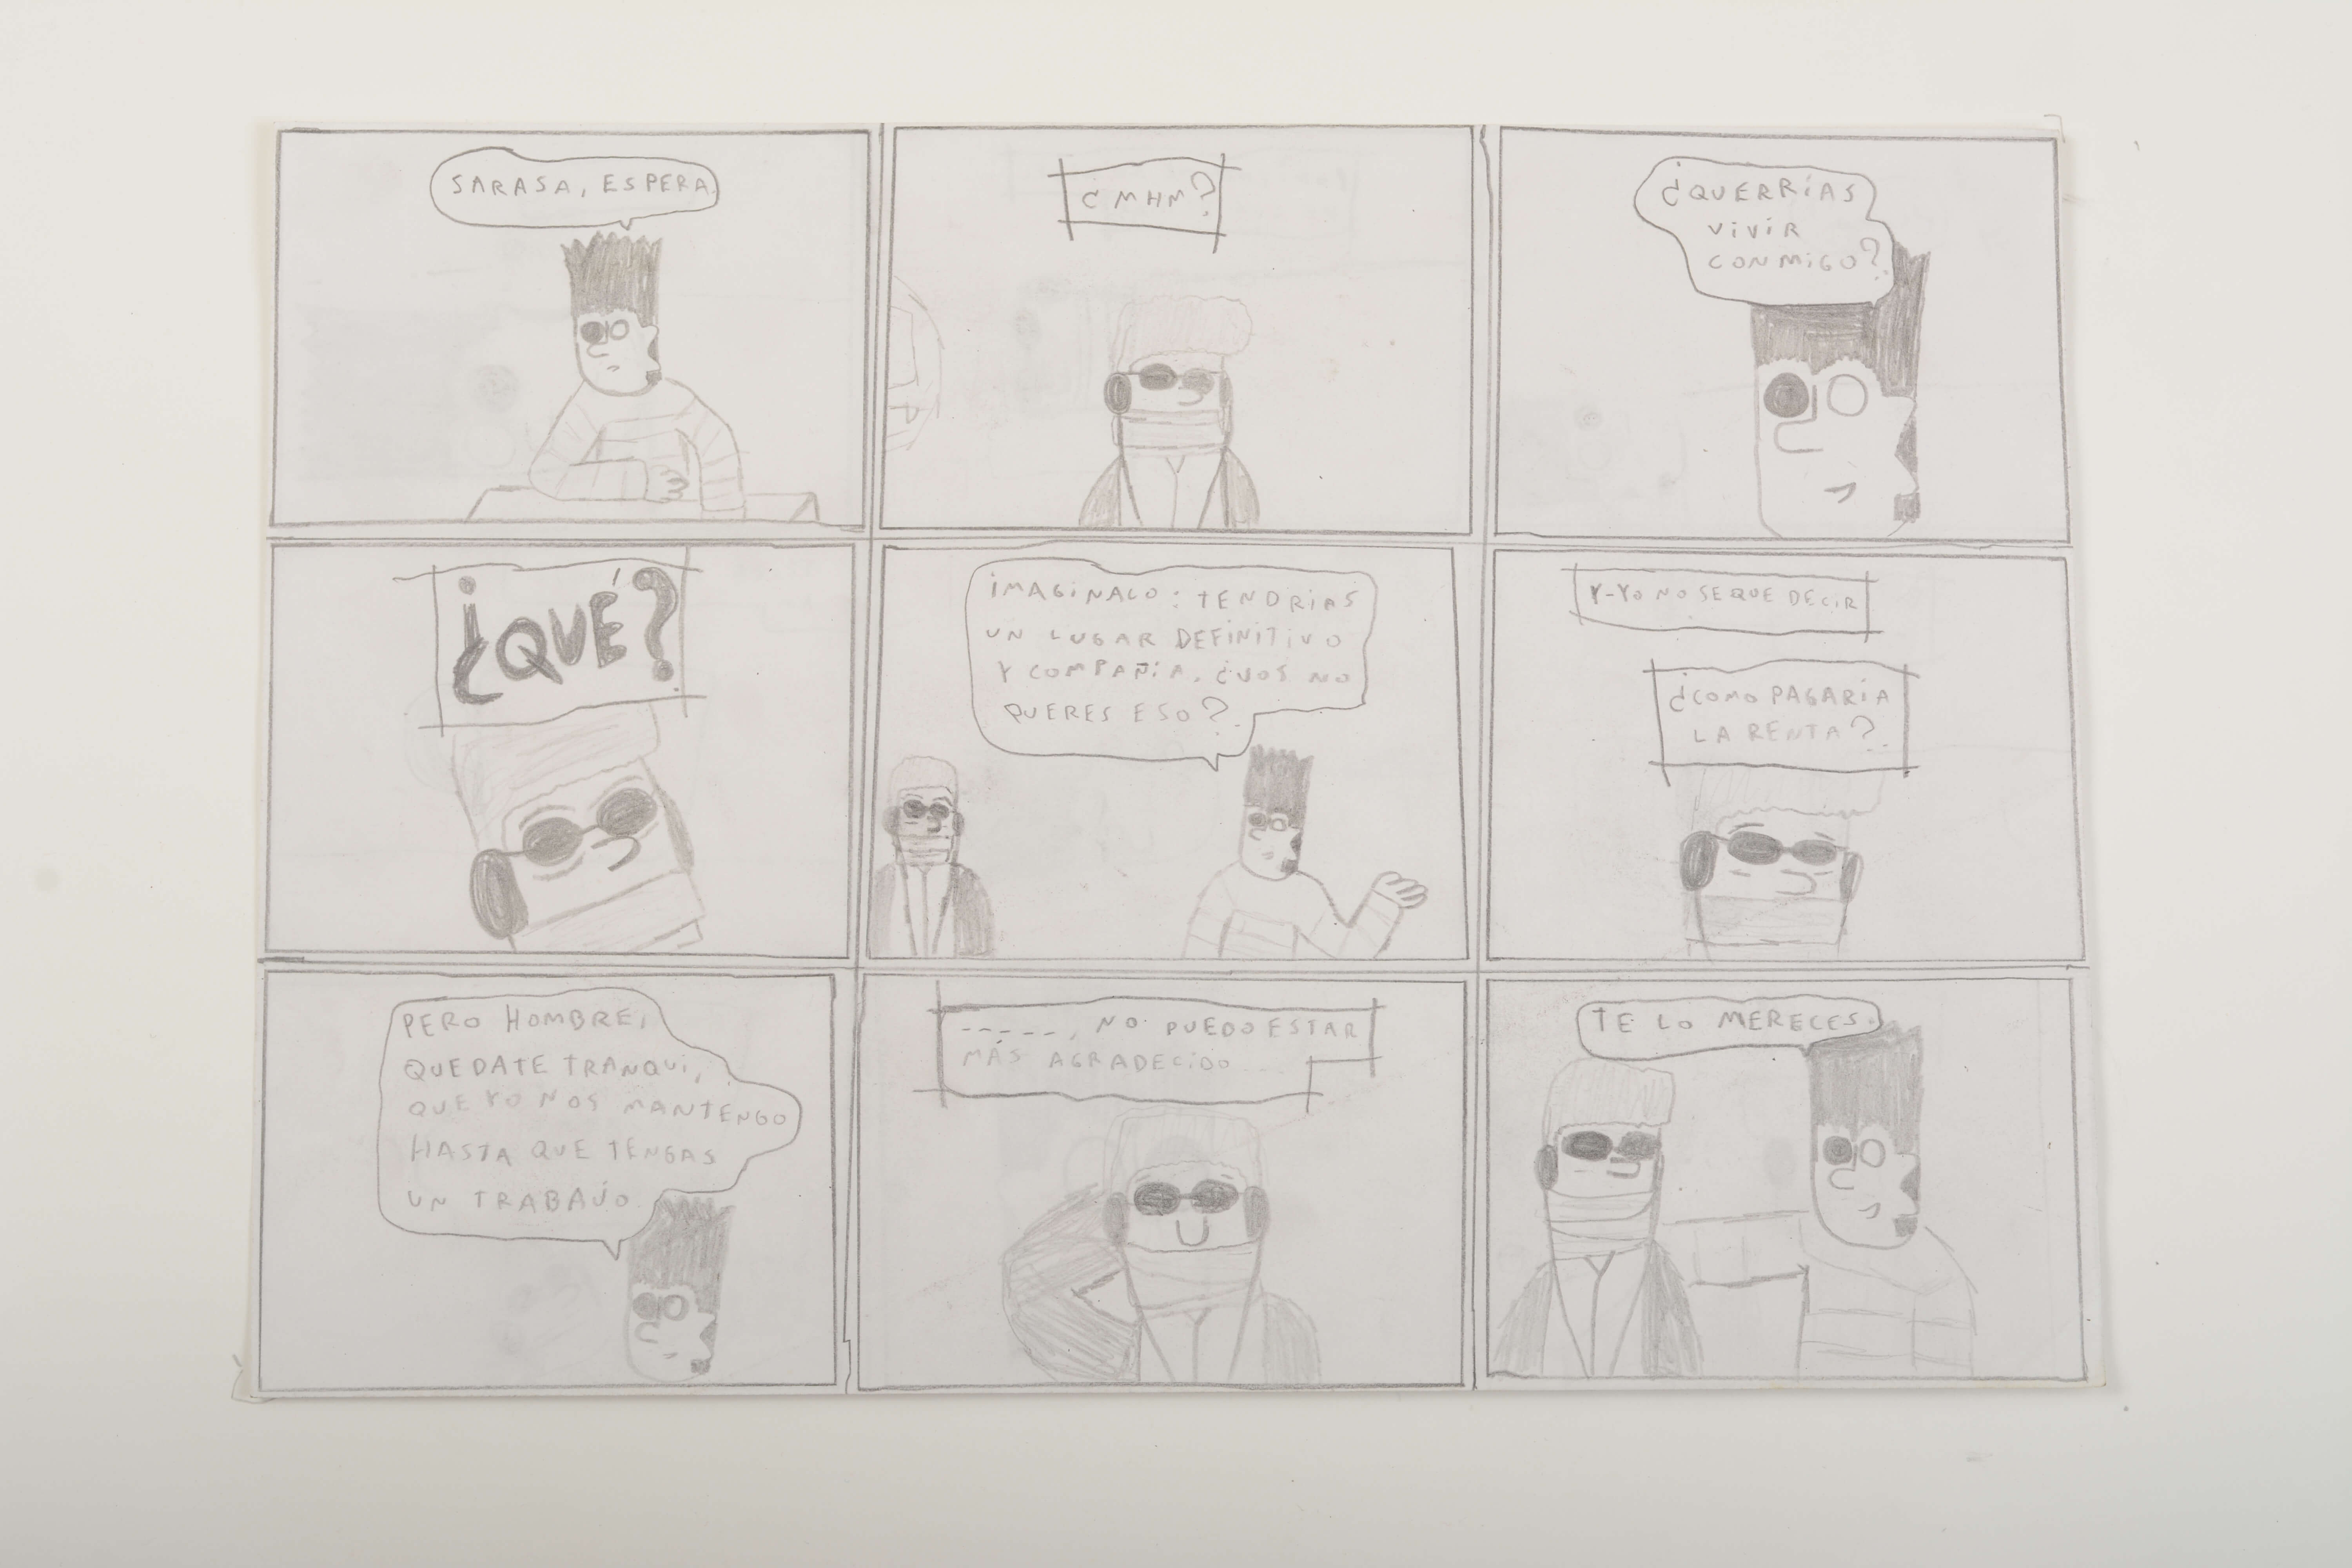 SARASA, ESPERA.
¿MHM?
¿QUERRÍAS
VIVIR
CONMIGO?
¿QUÉ?
IMAGINALO: TENDRÍAS
UN LUGAR DEFINITIVO
Y COMPAÑÍA. ¿VOS NO
QUERES ESO?
Y-YO NO SE QUE DECIR
¿COMO PAGARÍA
LA RENTA?
PERO HOMBRE,
QUEDATE TRANQUI,
QUE YO NOS MANTENGO
HASTA QUE TENGAS
UN TRABAJO.
-----, NO PUEDO ESTAR
MÁS AGRADECIDO...
TE LO MERECES.